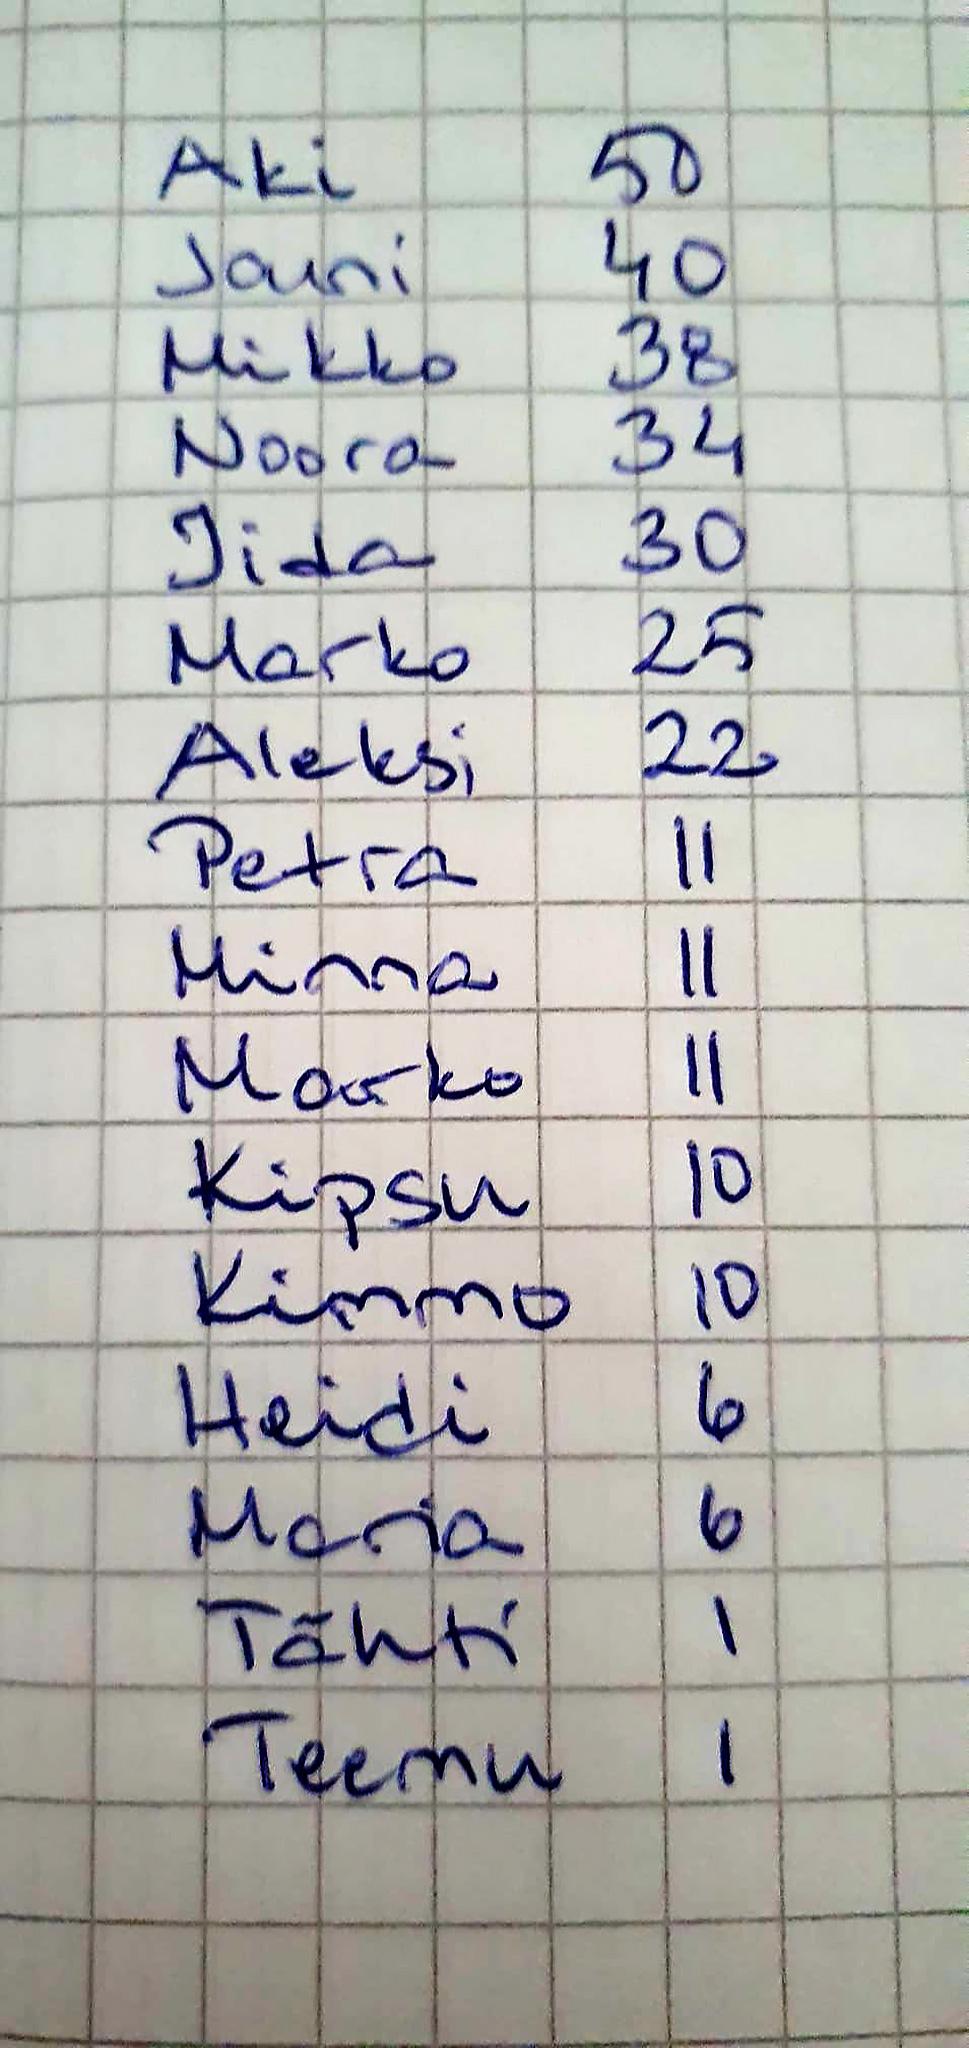 Aki 50
Jouni 40
Mikko 38
Noora 34
Iida 30
Marko 25
Aleksi 22
Petra 11
Minna 11
Marko 11
Kipsu 10
Kimmo 10
Heidi 6
Maria 6
Tähti 1
Teemu 1